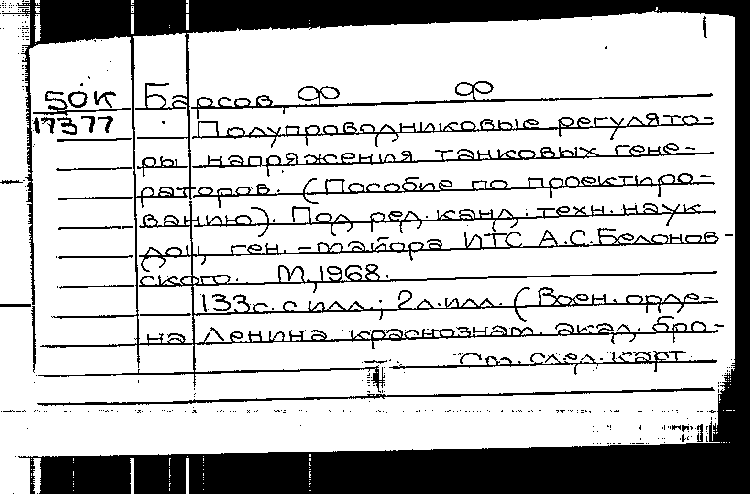 50К Барсов, Ф Ф
17377
Полупроводниковые регулято=
ры напряжения танковых гене-
раторов. (Пособие по проектиро-
ванию). Под ред. канд. техн. наук
доц, ген.=майора ИТС А.С.Белонов-
ского. М,1968.
133с. с илл.; 2л.илл. (Воен. орде=
на Ленина краснознам. акад. бро-
См. след. карт.